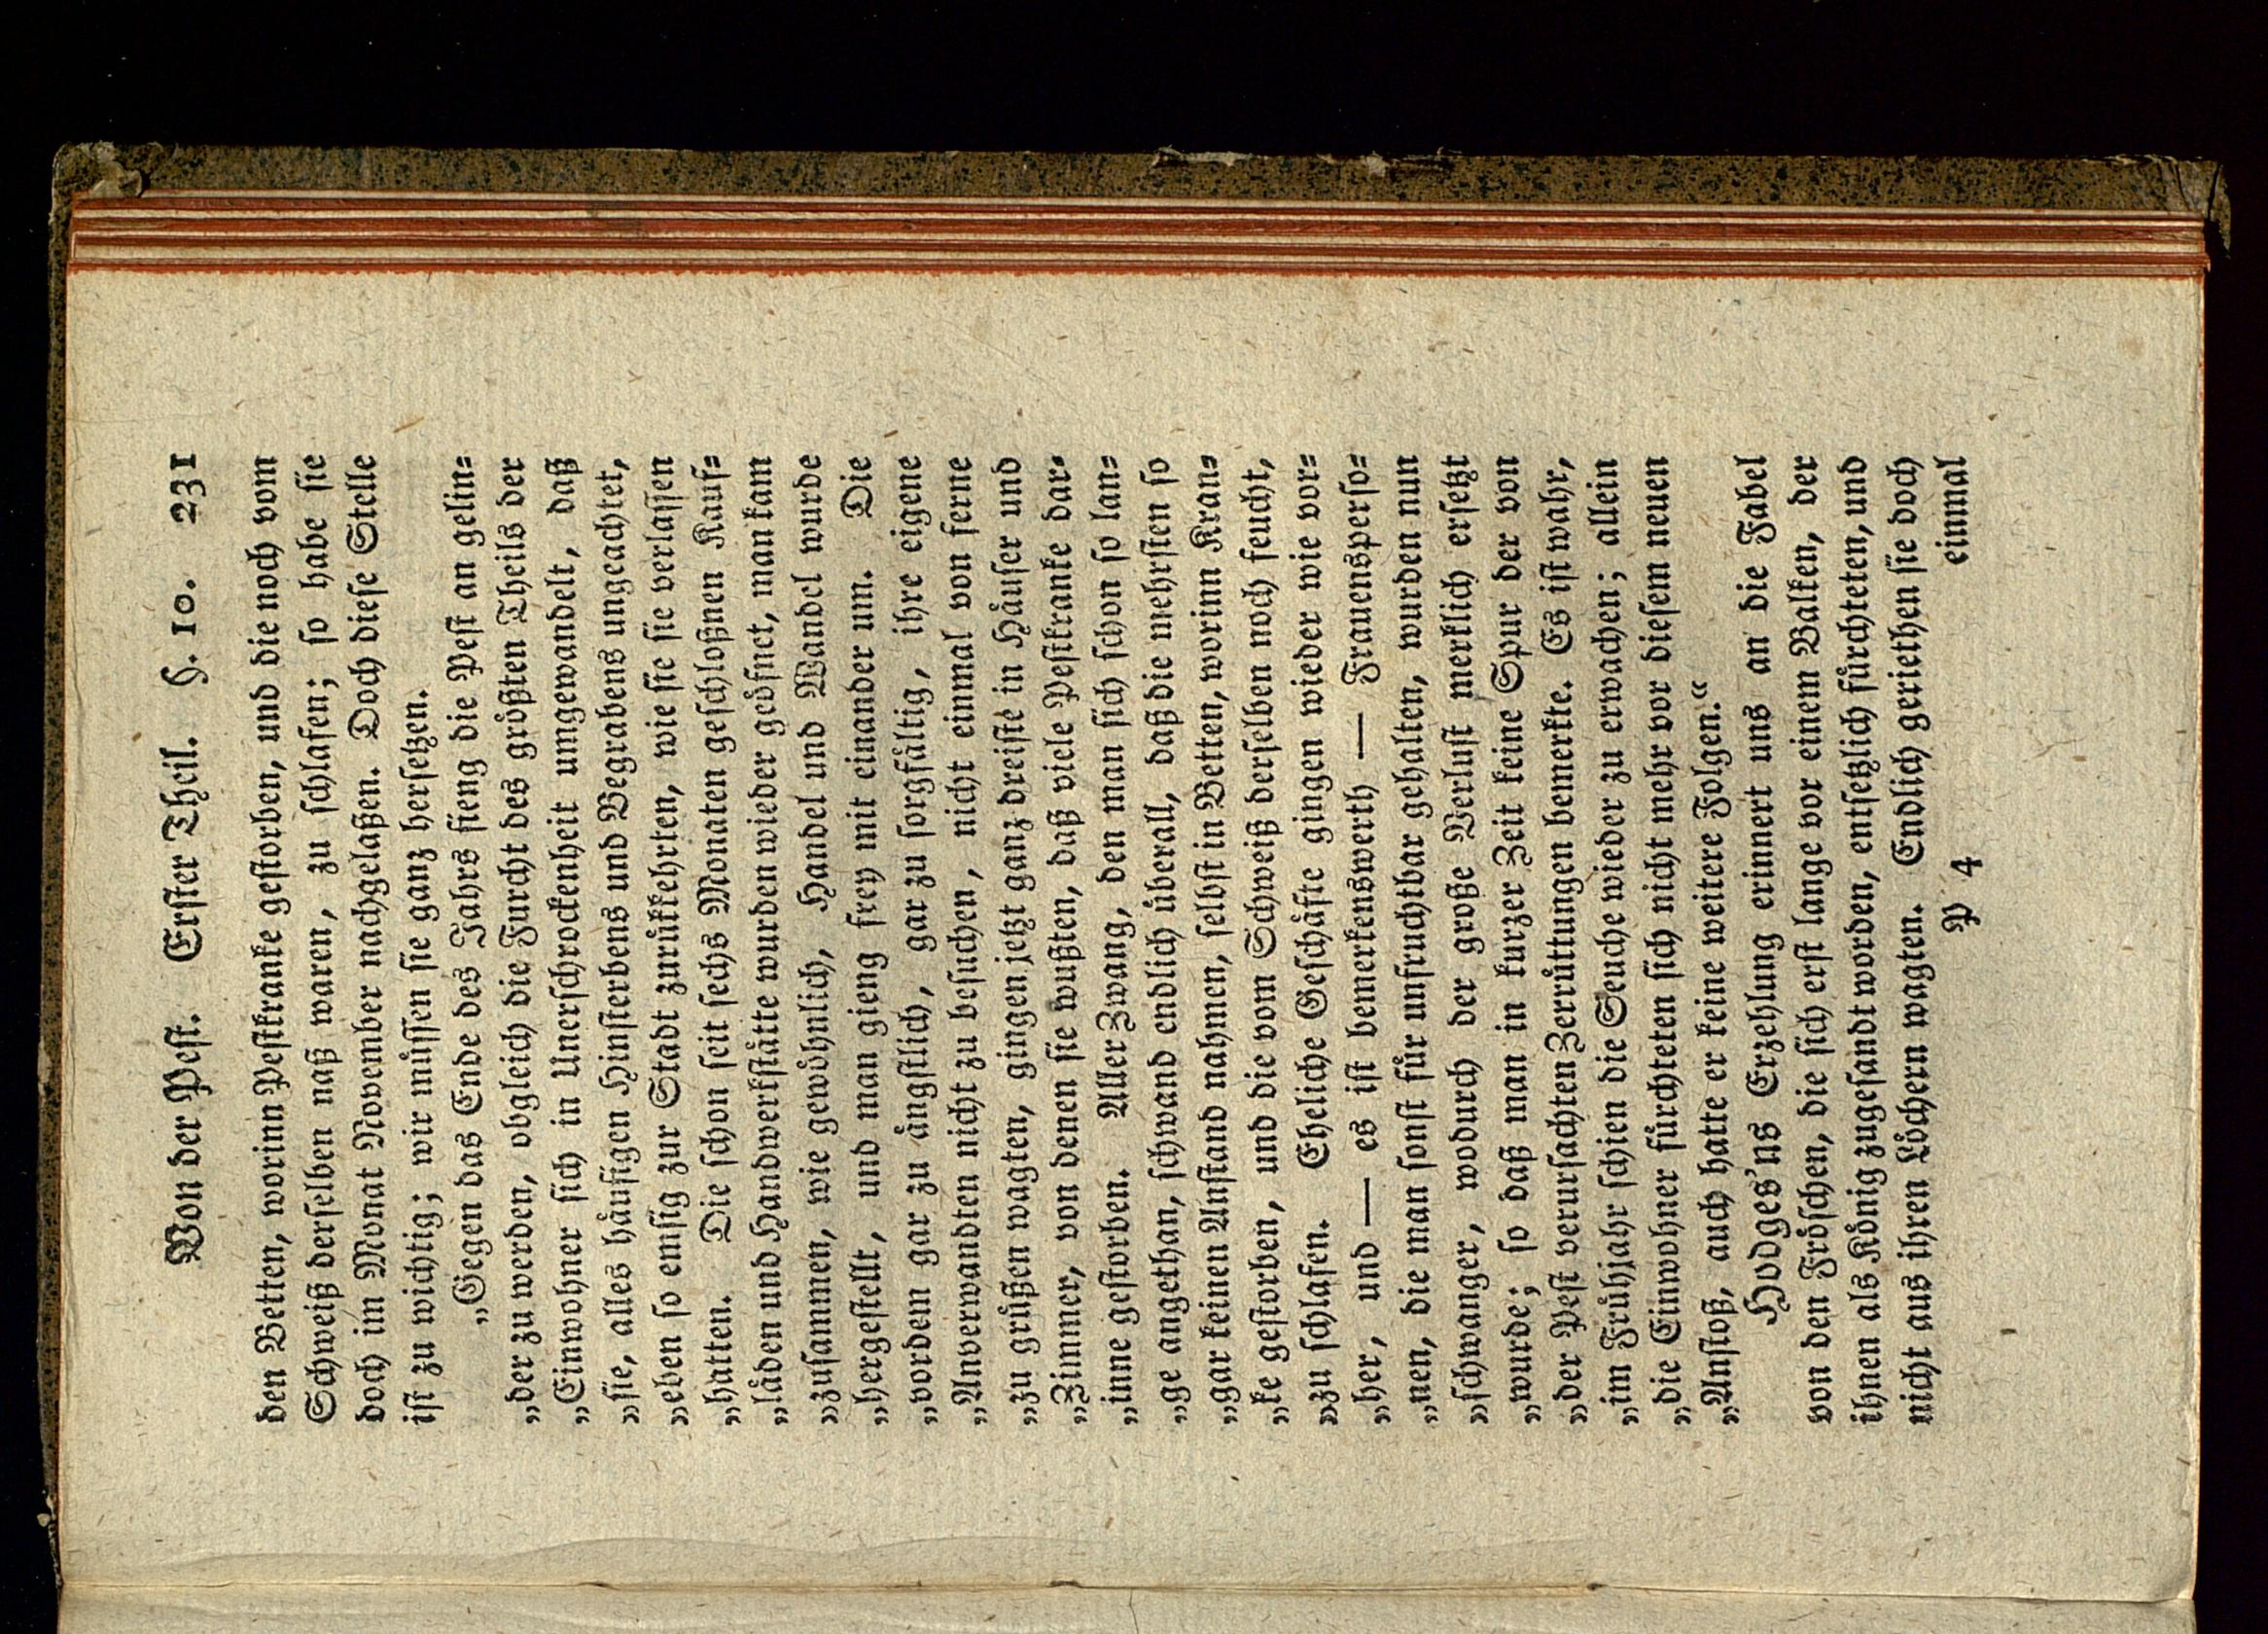 Von der Pest. Erster Theil. §. 10. 231
den Betten, worinn Pestkranke gestorben, und die noch vom
Schweiß derselben naß waren, zu schlafen; so habe sie
doch im Monat November nachgelaßen. Doch diese Stelle
ist zu wichtig; wir müssen sie ganz hersetzen.
„Gegen das Ende des Jahrs fieng die Pest an gelin⸗
„der zu werden, obgleich die Furcht des größten Theils der
„Einwohner sich in Unerschrockenheit umgewandelt, daß
„sie, alles häufigen Hinsterbens und Begrabens ungeachtet,
„eben so emsig zur Stadt zurükkehrten, wie sie sie verlassen
„hatten. Die schon seit sechs Monaten geschloßnen Kauf⸗
„läden und Handwerkstätte wurden wieder geöfnet, man kam
„zusammen, wie gewöhnlich, Handel und Wandel wurde
„hergestellt, und man gieng frey mit einander um. Die
„vordem gar zu ängstlich, gar zu sorgfältig, ihre eigene
„Anverwandten nicht zu besuchen, nicht einmal von ferne
„zu grüßen wagten, gingen jetzt ganz dreiste in Häuser und
„Zimmer, von denen sie wußten, daß viele Pestkranke dar⸗
„inne gestorben. Aller Zwang, den man sich schon so lan⸗
„ge angethan, schwand endlich überall, daß die mehrsten so
„gar keinen Anstand nahmen, selbst in Betten, worinn Kran⸗
„ke gestorben, und die vom Schweiß derselben noch feucht,
„zu schlafen. Eheliche Geschäfte gingen wieder wie vor⸗
„her, und — es ist bemerkenswerth — Frauensperso⸗
„nen, die man sonst für unfruchtbar gehalten, wurden nun
„schwanger, wodurch der große Verlust merklich ersetzt
„wurde; so daß man in kurzer Zeit keine Spur der von
„der Pest verursachten Zerrüttungen bemerkte. Es ist wahr,
„im Frühjahr schien die Seuche wieder zu erwachen; allein
„die Einwohner fürchteten sich nicht mehr vor diesem neuen
„Anstoß, auch hatte er keine weitere Folgen.“
Hodges'ns Erzehlung erinnert uns an die Fabel
von den Fröschen, die sich erst lange vor einem Balken, der
ihnen als König zugesandt worden, entsetzlich fürchteten, und
nicht aus ihren Löchern wagten. Endlich geriethen sie doch
P 4 einmal